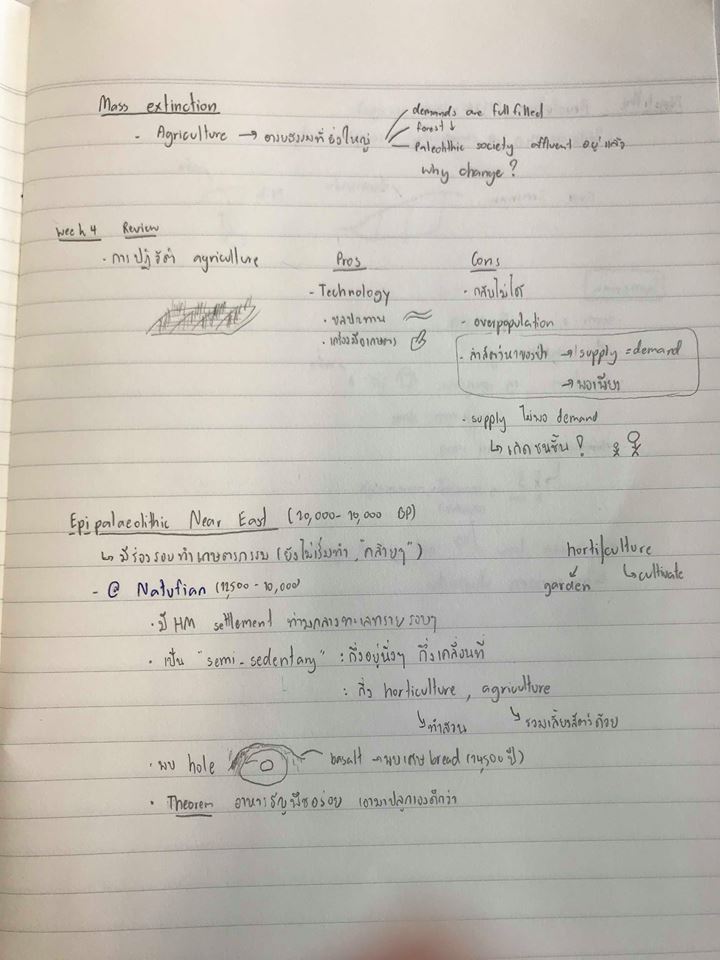 Mass extinction
- Agriculture → อารยธรรมที่ยิ่งใหญ่
demands are full filled
forest ↓
Paleolithic society affluent อยู่แล้ว
why change?
Week 4 Review
• การปฏิวัติ agriculture
Pros
- Technology
• ชลประทาน
• เครื่องมือเกษตร
Cons
• กลับไม่ได้
• overpopulation
• ล่าสัตว์หาของป่า → supply = demand
→ พอเพียง
• supply ไม่พอ demand
↳ เกิดชนชั้น!
Epipalaeolithic Near East (20,000-10,000 BP)
↳ มีร่องรอยทำเกษตรกรรม (ยังไม่เริ่มทำ, "คล้ายๆ")
horti/culture
garden ↳ cultivate
- @ Natufian (12,500 - 10,000)
• มี HM settlement ท่ามกลางทะเลทรายรอบๆ
• เป็น "semi-sedentary" : กึ่งอยู่นิ่งๆ กึ่งเคลื่อนที่
: กึ่ง horticulture, agriculture
↳ ทำสวน ↳ รวมเลี้ยงสัตว์ด้วย
• พบ hole basalt → พบเศษ bread (14,500 ปี)
• Theorem อาหารธัญพืชอร่อย เอามาปลูกเองดีกว่า